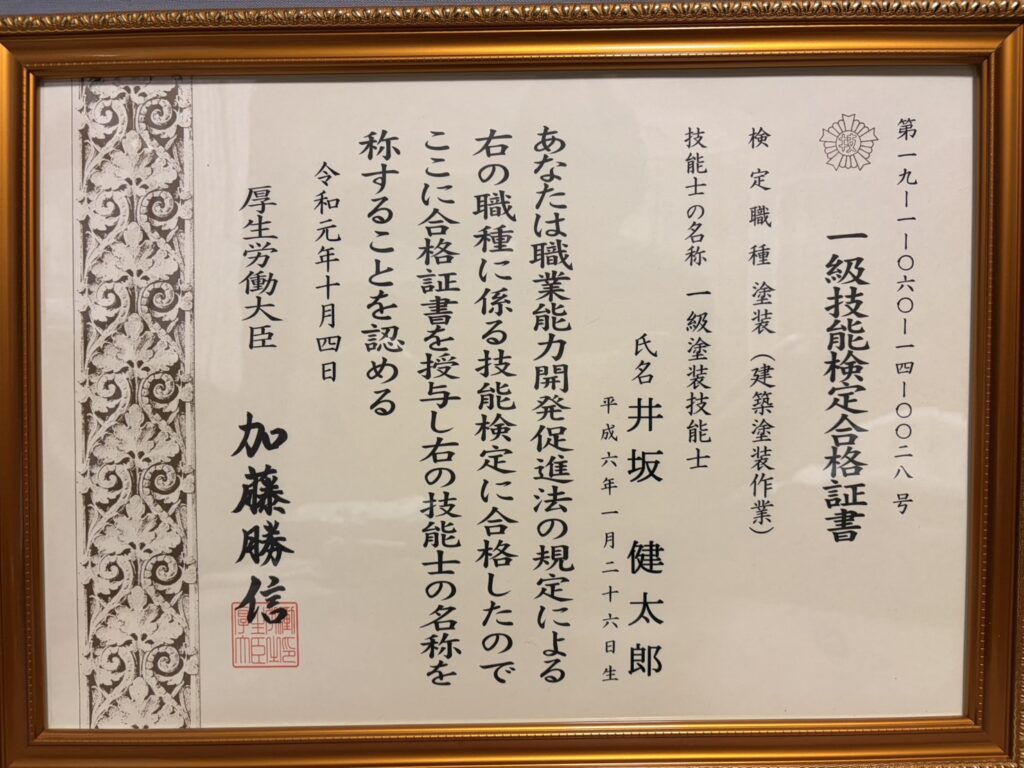 第一九ー一ー〇六〇ー一四ー〇〇二八号
一級技能検定合格証書
検定職種 塗装（建築塗装作業）
技能士の名称 一級塗装技能士
氏名 井坂 健太郎
平成六年一月二十六日生
あなたは職業能力開発促進法の規定による
右の職種に係る技能検定に合格したので
ここに合格証書を授与し右の技能士の名称を
称することを認める
令和元年十月四日
厚生労働大臣 加藤勝信